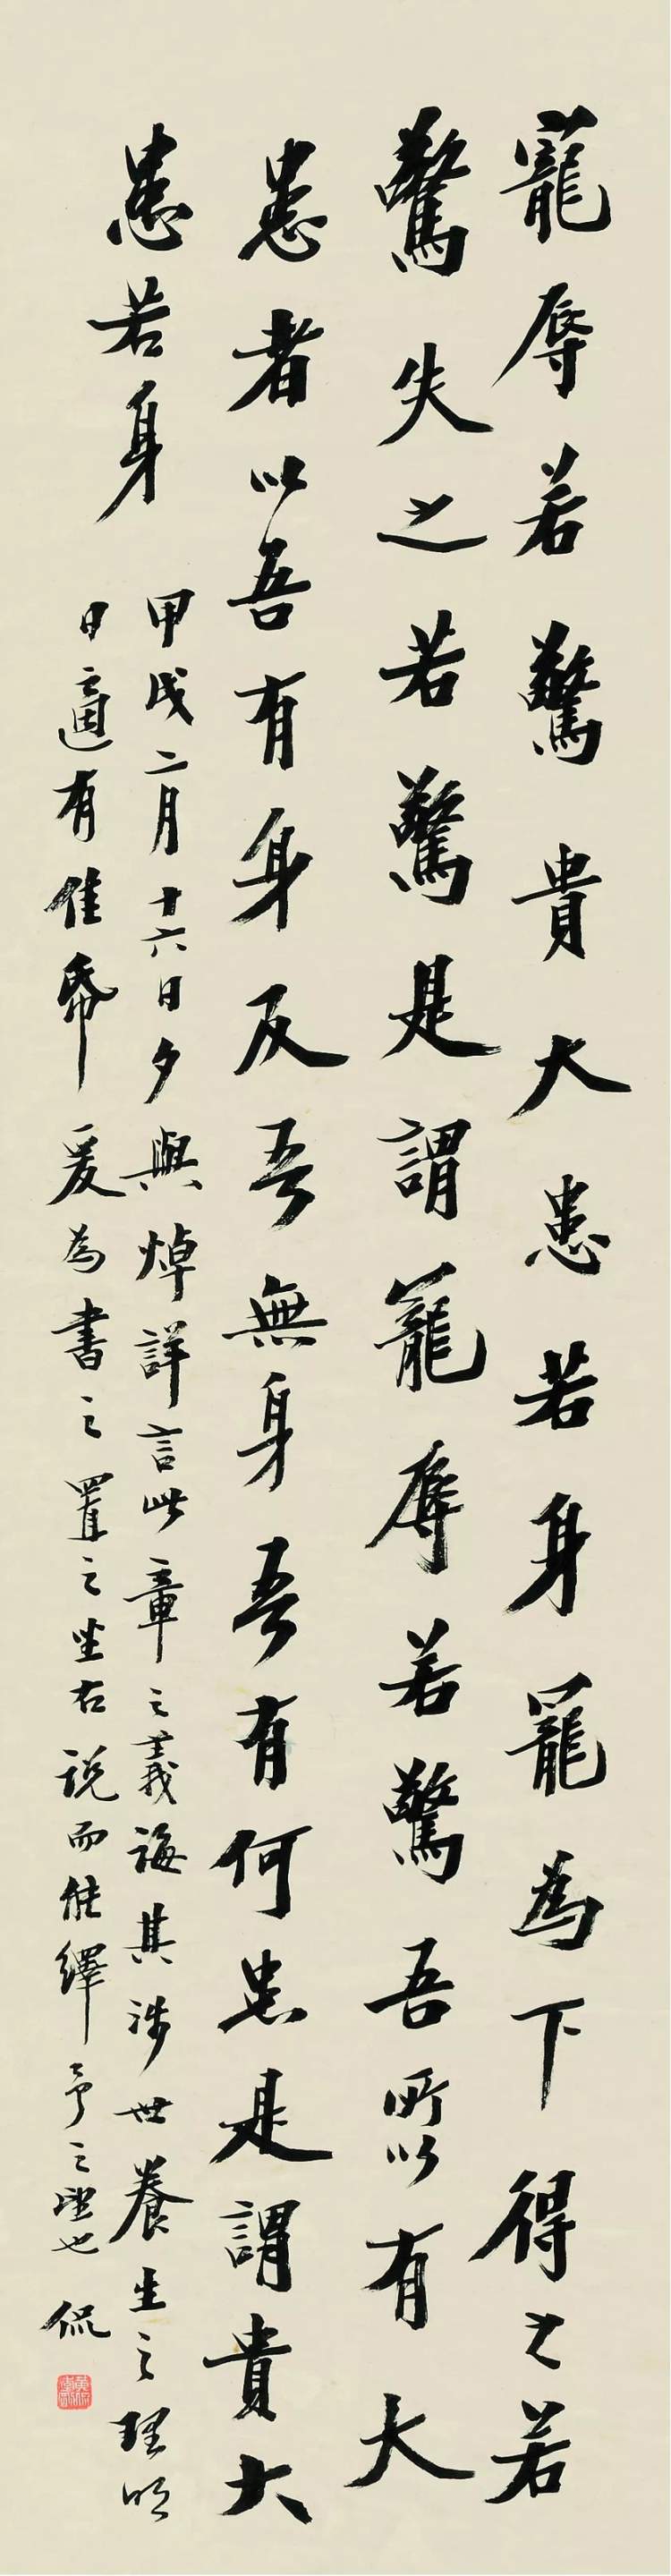 寵辱若驚貴大患若身寵為下得之若
驚失之若驚是謂寵辱若驚吾所以有大
患者以吾有身及吾無身吾有何患是謂貴大
患若身
甲戌二月十六日夕與焯詳言此章之義誨其涉世養生之理明
日適有佳帋爰為書之置之坐右說而能繹予之望也 侃